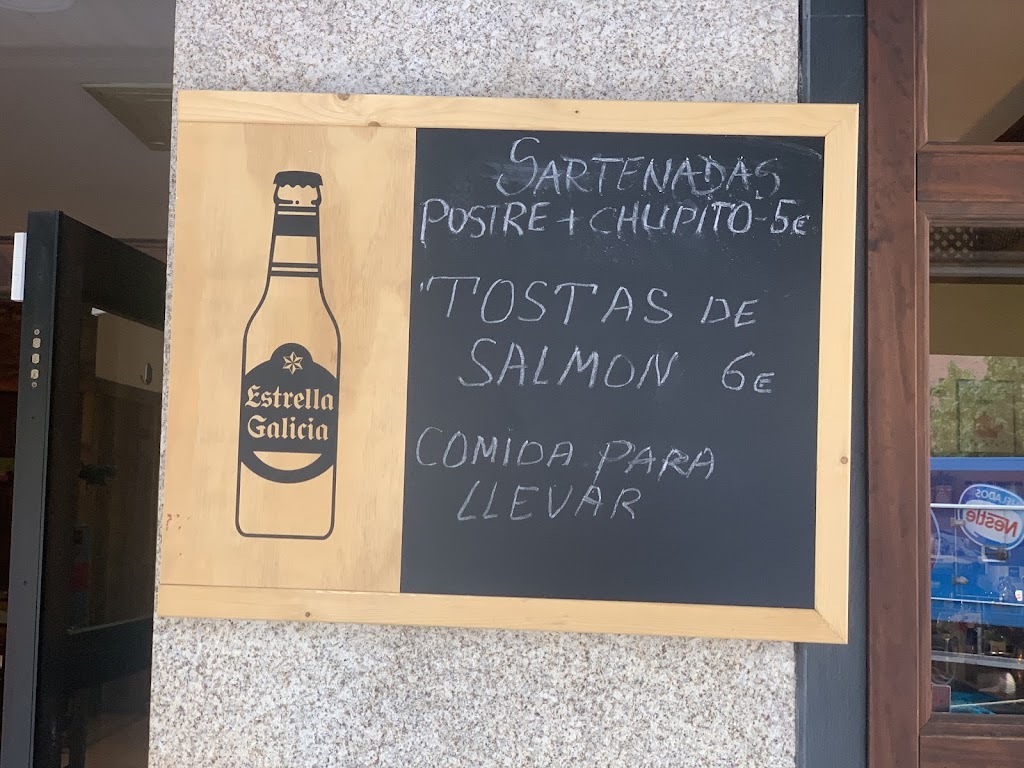 Estrella
Galicia
SARTENADAS
POSTRE + CHUPITO - 5€
TOSTAS DE
SALMON 6€
COMIDA PARA
LLEVAR
HELADOS
Nestle